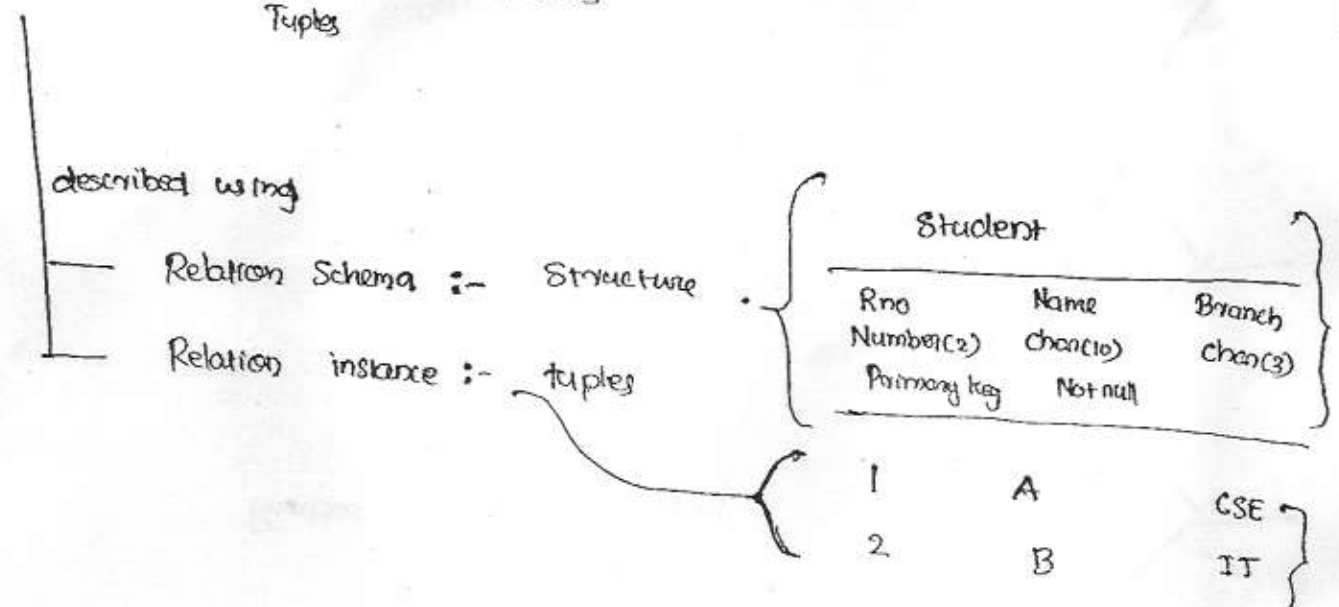 Tuples
described using
Relation Schema :- Structure
Relation instance :- tuples
Student
Rno Name Branch
Number(2) char(10) char(3)
Primary key Not null
1 A CSE
2 B IT